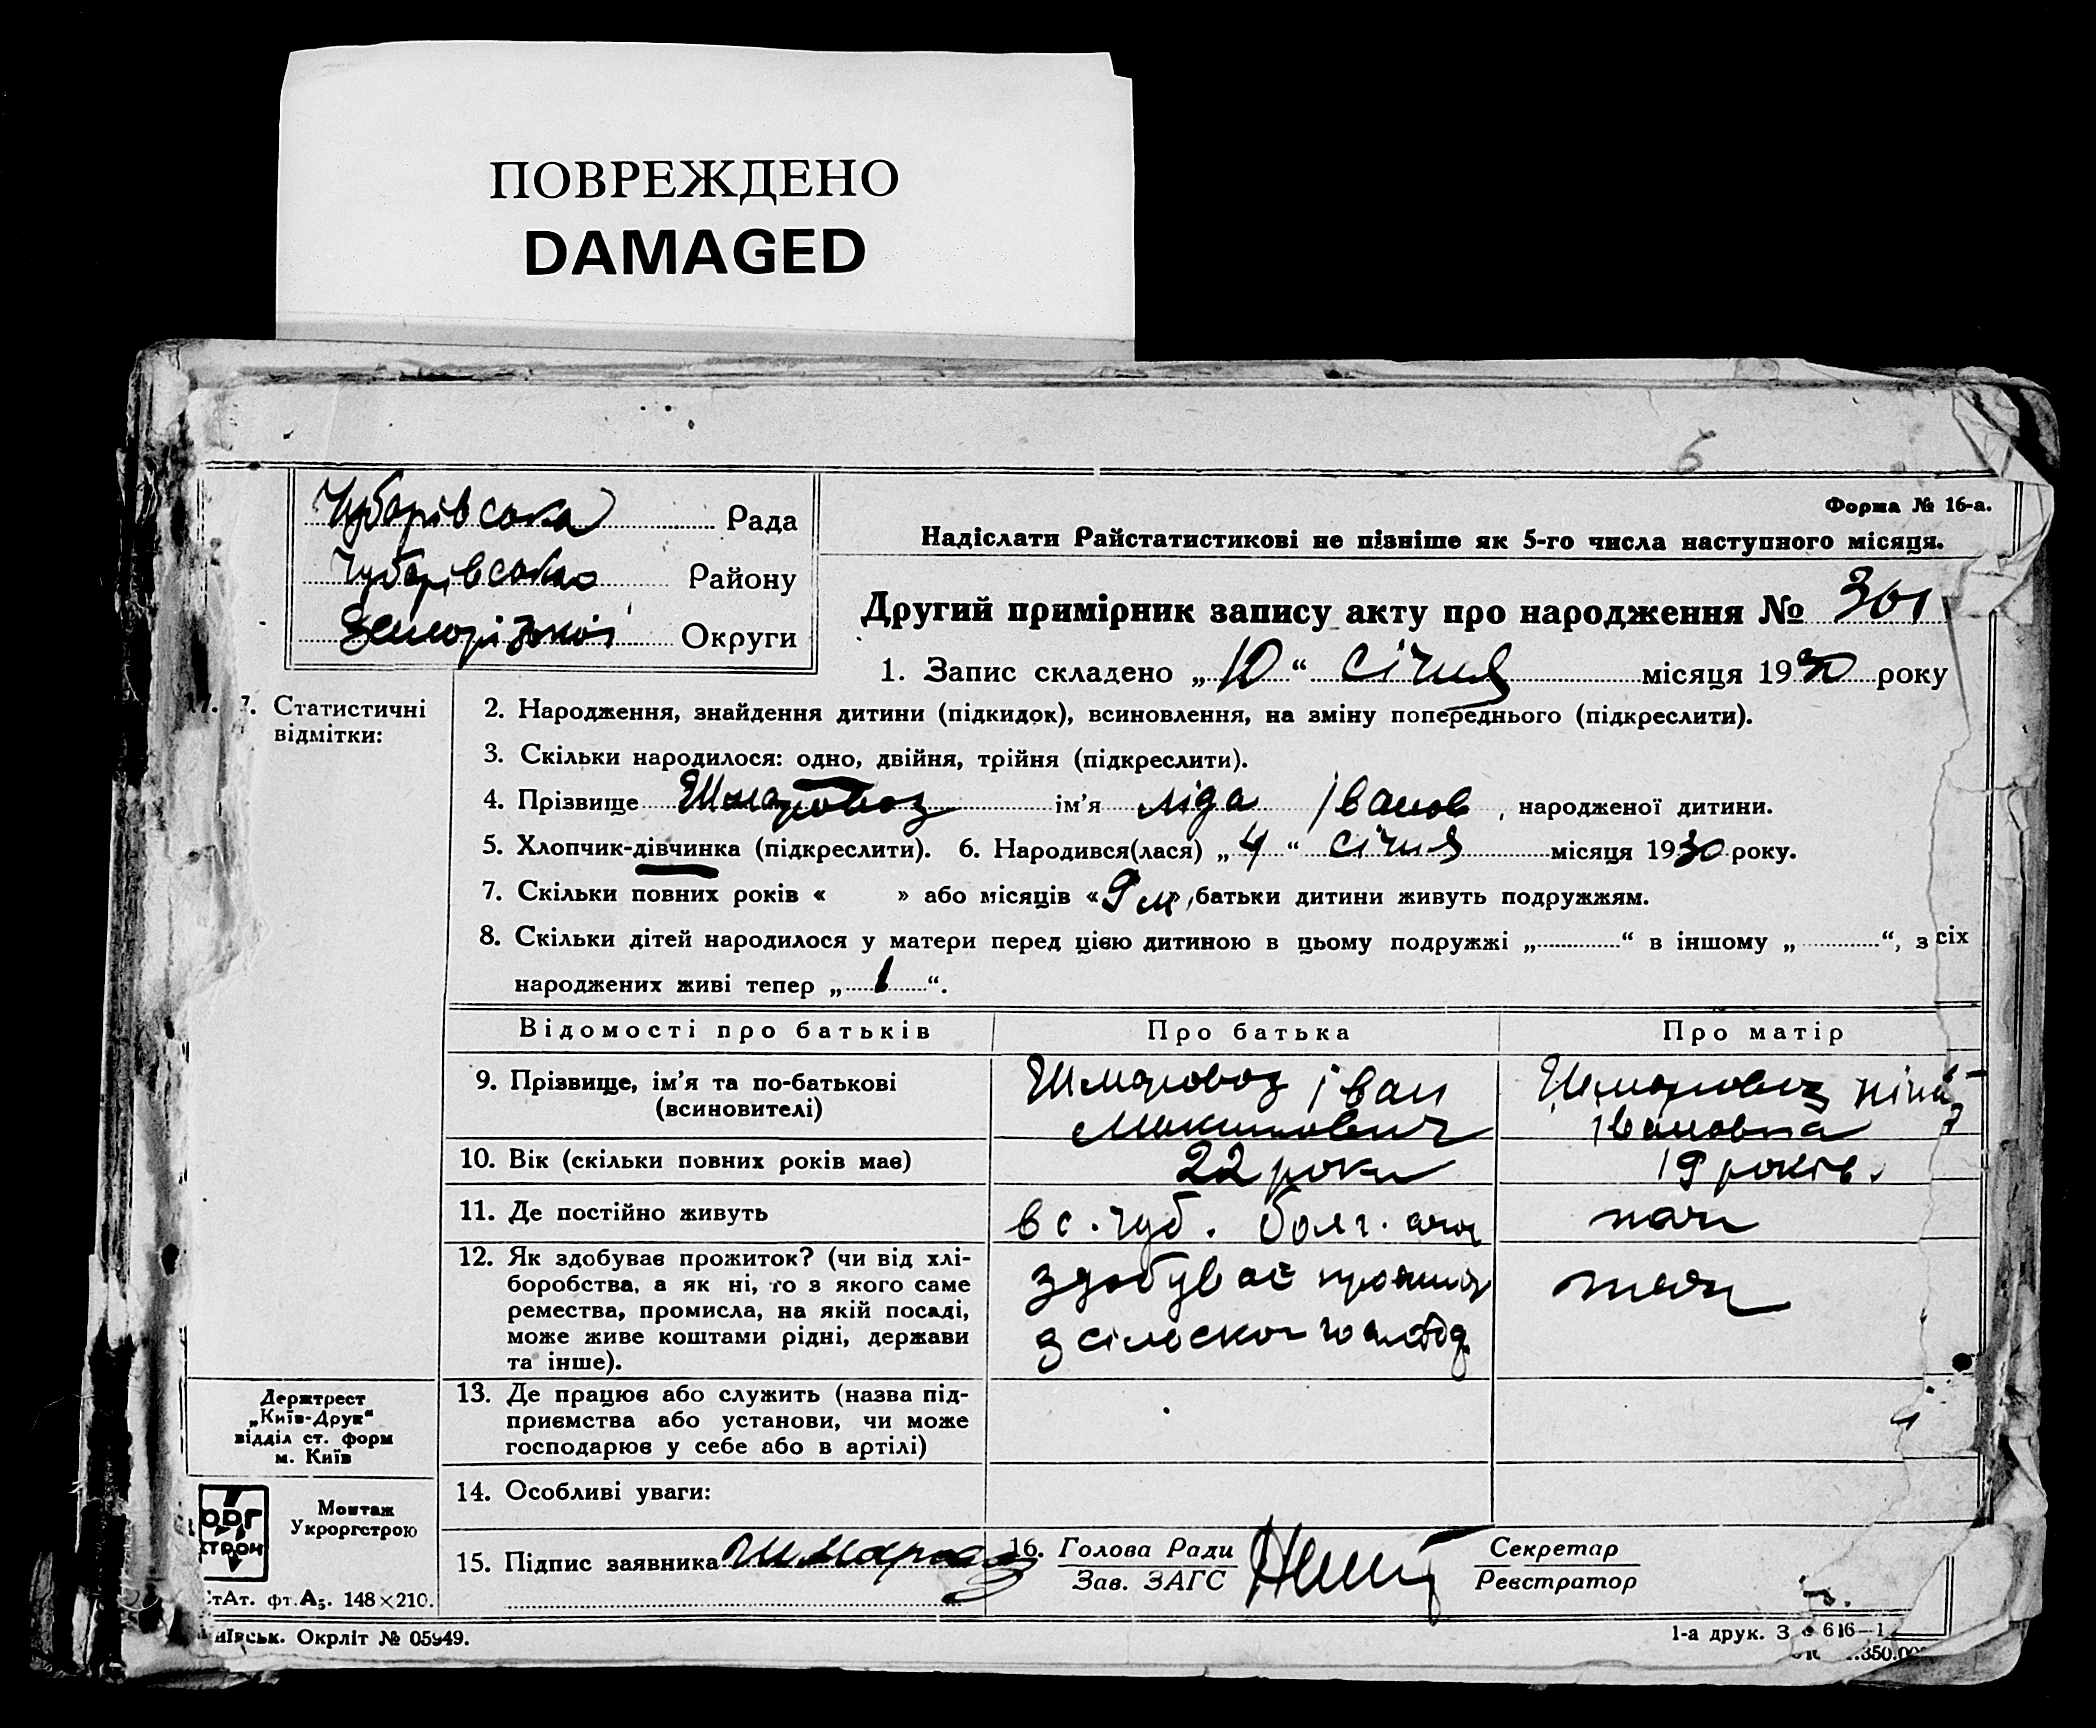 ПОВРЕЖДЕНО
DAMAGED
6
Чубарівська Рада
Чубарівського Району
Запорізької Округи
Форма № 16-а.
Надіслати Райстатистикові не пізніше як 5-го числа наступного місяця.
Другий примірник запису акту про народження № 301
1. Запис складено „10“ січня місяця 1930 року
7. Статистичні
відмітки:
2. Народження, знайдення дитини (підкидок), всиновлення, на зміну попереднього (підкреслити).
3. Скільки народилося: одно, двійня, трійня (підкреслити).
4. Прізвище Шмаровоз ім’я Ліда Іванов, народженої дитини.
5. Хлопчик-дівчинка (підкреслити). 6. Народився(лася) „4“ січня місяця 1930 року.
7. Скільки повних років « » або місяців «9 м», батьки дитини живуть подружжям.
8. Скільки дітей народилося у матери перед цією дитиною в цьому подружжі „ “ в іншому „ “, з сіх
народжених живі тепер „1“.
Відомості про батьків Про батька Про матір
9. Прізвище, ім’я та по-батькові
(всиновителі)
Шмаровоз Іван
Макимович
Шмаровоз Ніна
Івановна
10. Вік (скільки повних років має) 22 роки 19 років.
11. Де постійно живуть в с. Чуб. Болг.
12. Як здобуває прожиток? (чи від хлі-
боробства, а як ні, то з якого саме
ремества, промисла, на якій посаді,
може живе коштами рідні, держави
та інше).
здобуває
з сільског господ
13. Де працює або служить (назва під-
приємства або установи, чи може
господарює у себе або в артілі)
14. Особливі уваги:
15. Підпис заявника Шмаровоз
16. Голова Ради
Зав. ЗАГС
Секретар
Реєстратор
Держтрест
„Київ-Друк“
відділ ст. форм
м. Київ
ОРГ
СТРОЙ
Монтаж
Укроргстрою
СтАт. фт. А5. 148×210.
Київськ. Окрліт № 05949.
1-а друк. З 616—1
.350.00